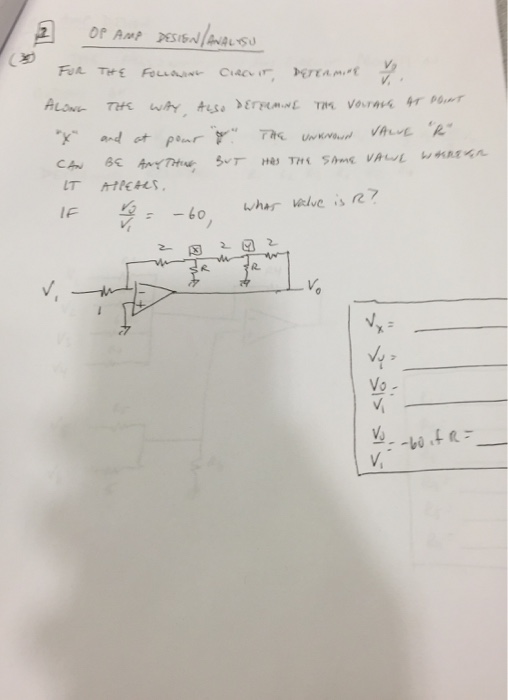 2 OP AMP DESIGN/ANALYSIS
(*)
FOR THE FOLLOWING CIRCUIT, DETERMINE Vo/V1.
ALONG THE WAY, ALSO DETERMINE THE VOLTAGE AT POINT
"X" and at point "Y". THE UNKNOWN VALUE "R"
CAN BE ANYTHING BUT HAS THE SAME VALUE WHEREVER
IT APPEARS.
IF Vo/V1 = -60, what value is R?
2 X 2 Y 2
R R
V1 1 - + Vo
Vx =
Vy =
Vo/V1 =
Vo/V1 = -60 if R =